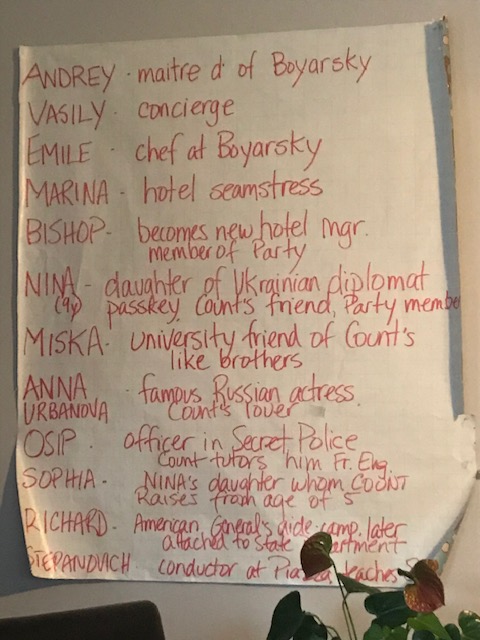 ANDREY - maitre d' of Boyarsky
VASILY - concierge
EMILE - chef at Boyarsky
MARINA - hotel seamstress
BISHOP - becomes new hotel mgr.
member of Party
NINA - daughter of Ukrainian diplomat
(9y) passkey, Count's friend, Party membe
MISKA - University friend of Count's
like brothers
ANNA - famous Russian actress
URBANOVA Count's lover
OSIP - officer in Secret Police
Count tutors him Fr. Eng.
SOPHIA - NINA's daughter whom COUNT
Raises from age of 5
RICHARD - American General's aide-camp later
attached to State
STEPANOVICH conductor at